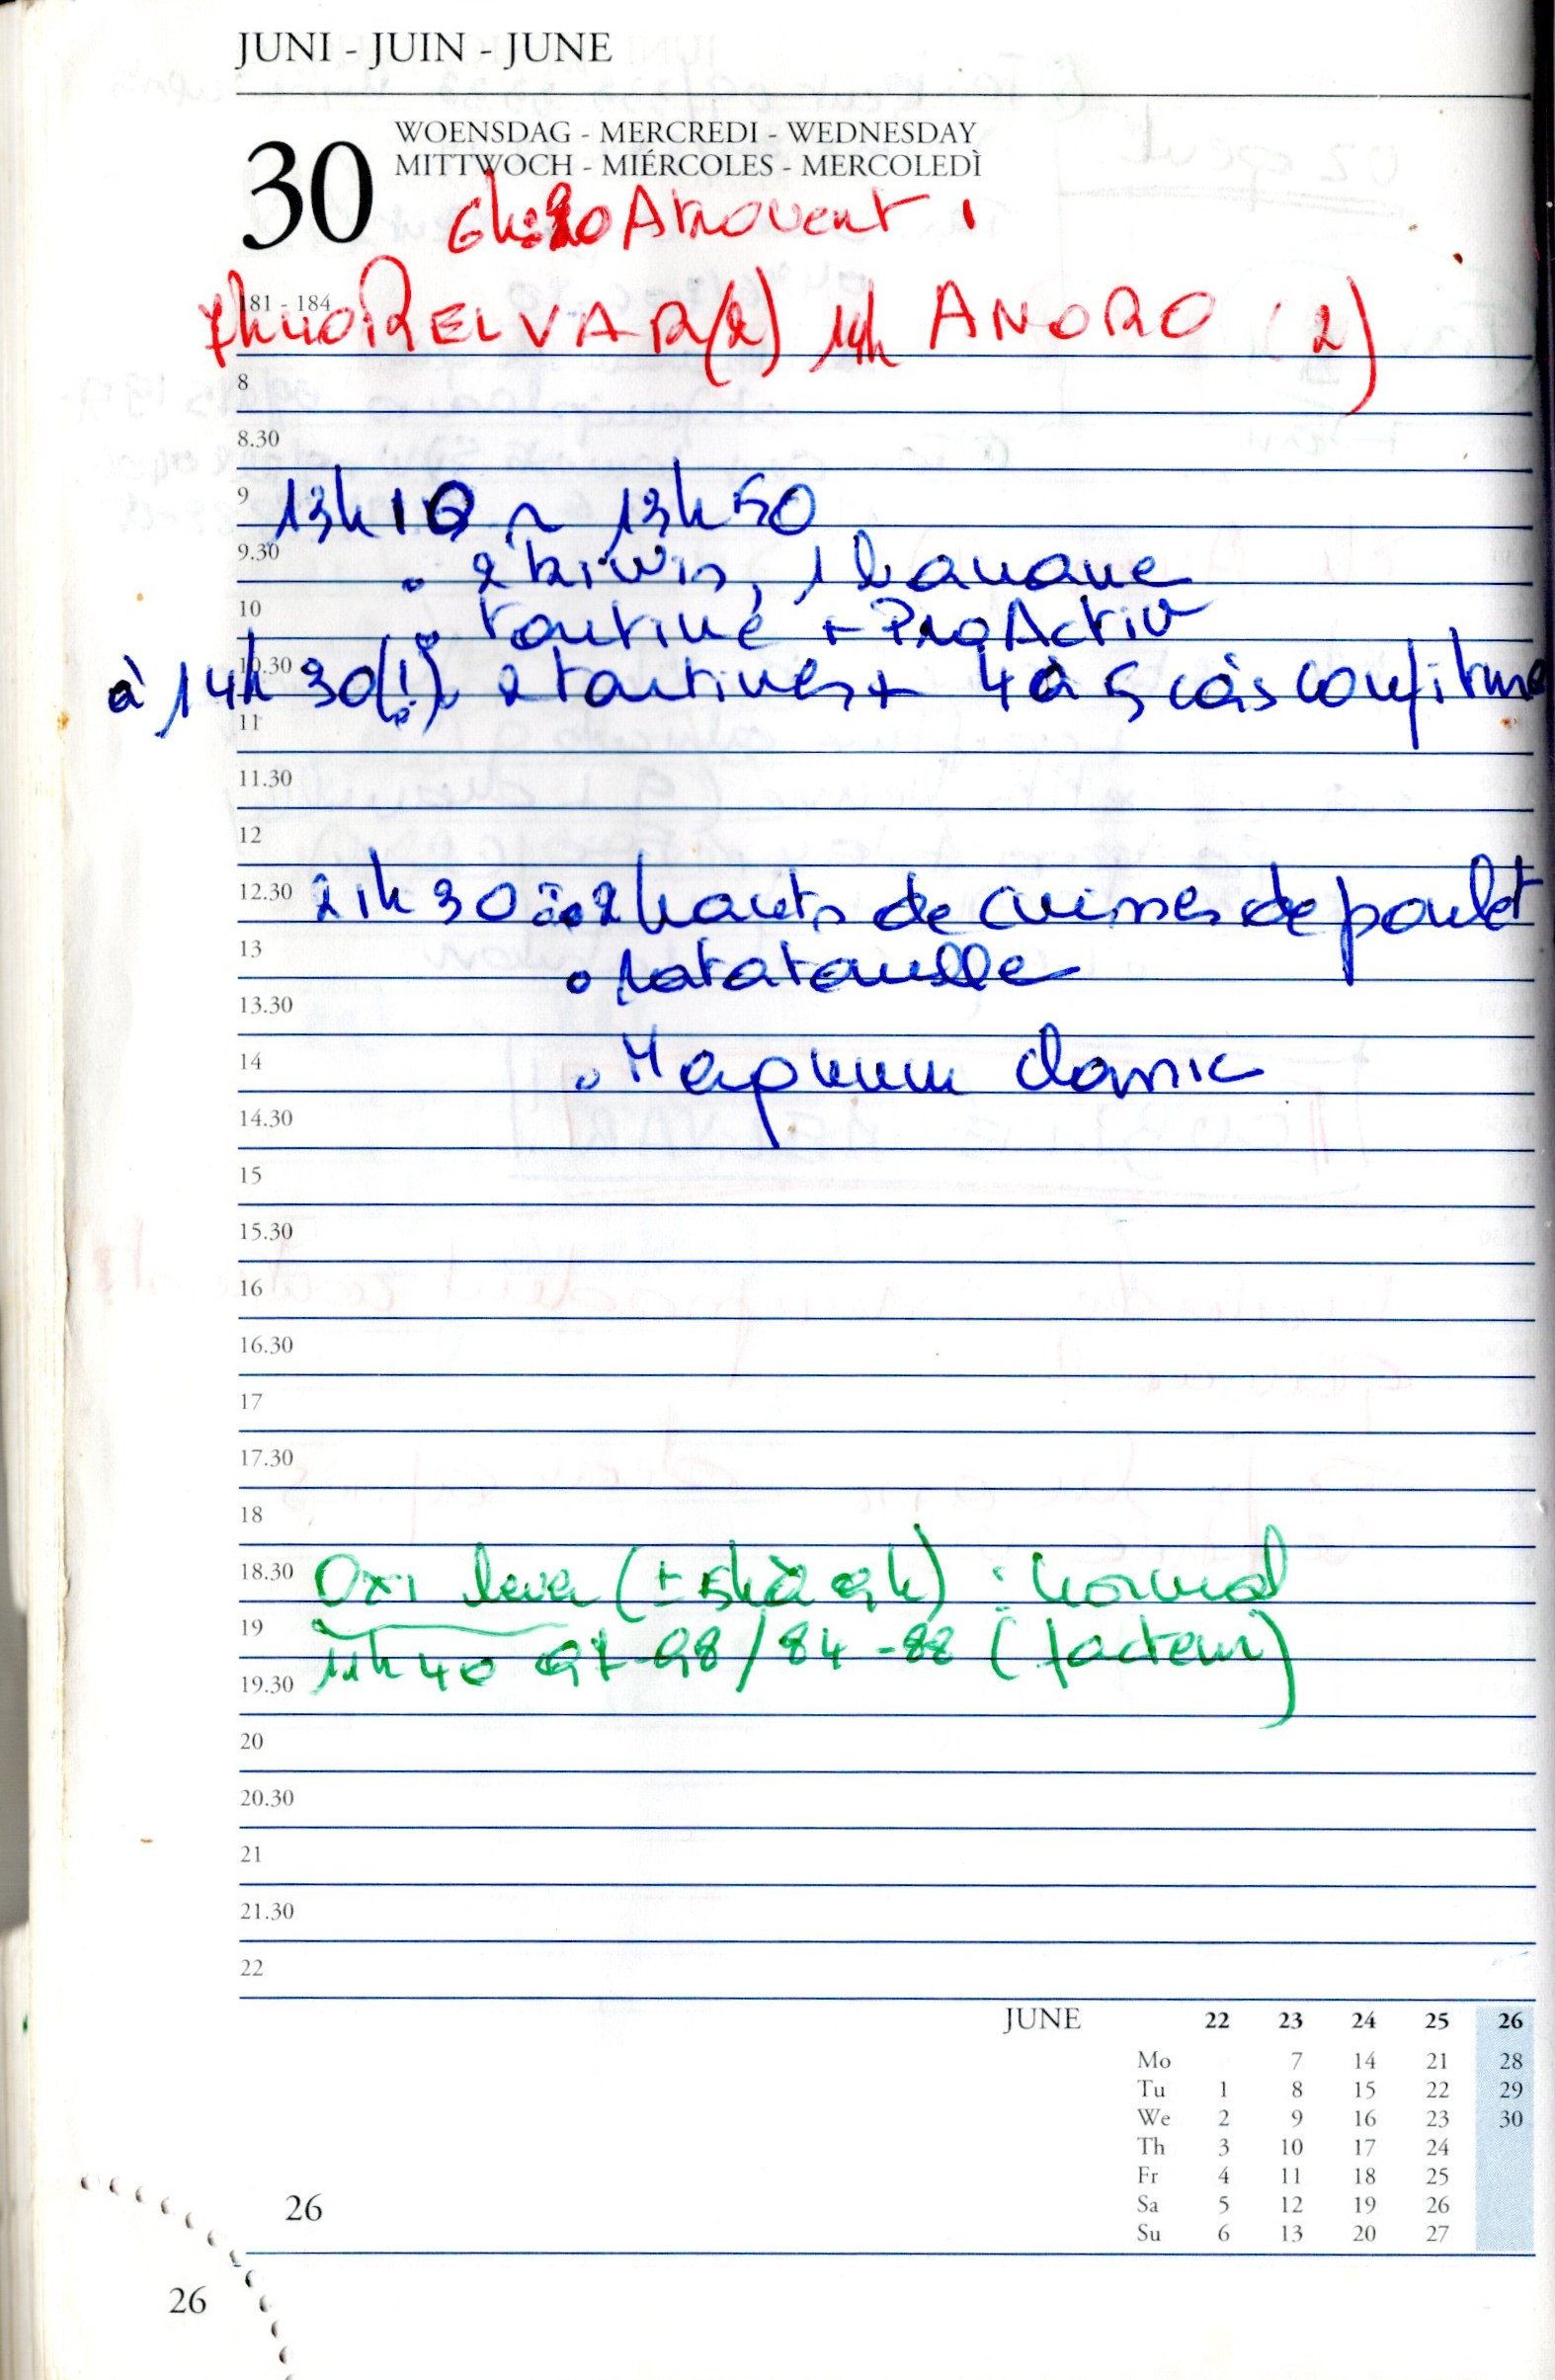 JUNI - JUIN - JUNE
30
WOENSDAG - MERCREDI - WEDNESDAY
MITTWOCH - MIÉRCOLES - MERCOLEDÌ
Atrovent 1
181 - 184
7h40 RELVAR (2) 14h ANORO (2)
8
8.30
9
13h10 ~ 13h50
9.30
. 2 kiwis, 1 banane
10
. tartine + ProActiv
10.30
à 14h30(!). 2 tartines + 4 à 5 càs confiture
11
11.30
12
12.30
21h30 : 2 hauts de cuisses de poulet
13
. ratatouille
13.30
14
. Magnum classic
14.30
15
15.30
16
16.30
17
17.30
18
18.30
Oxi lever (± 5h à 9h) : normal
19
11h40 97-98/84-88 (facteur)
19.30
20
20.30
21
21.30
22
JUNE 22 23 24 25 26
Mo 7 14 21 28
Tu 1 8 15 22 29
We 2 9 16 23 30
Th 3 10 17 24
Fr 4 11 18 25
Sa 5 12 19 26
Su 6 13 20 27
26
26